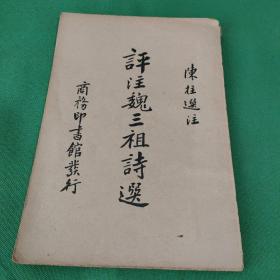 陳柱選注
評注魏三祖詩選
商務印書館發行